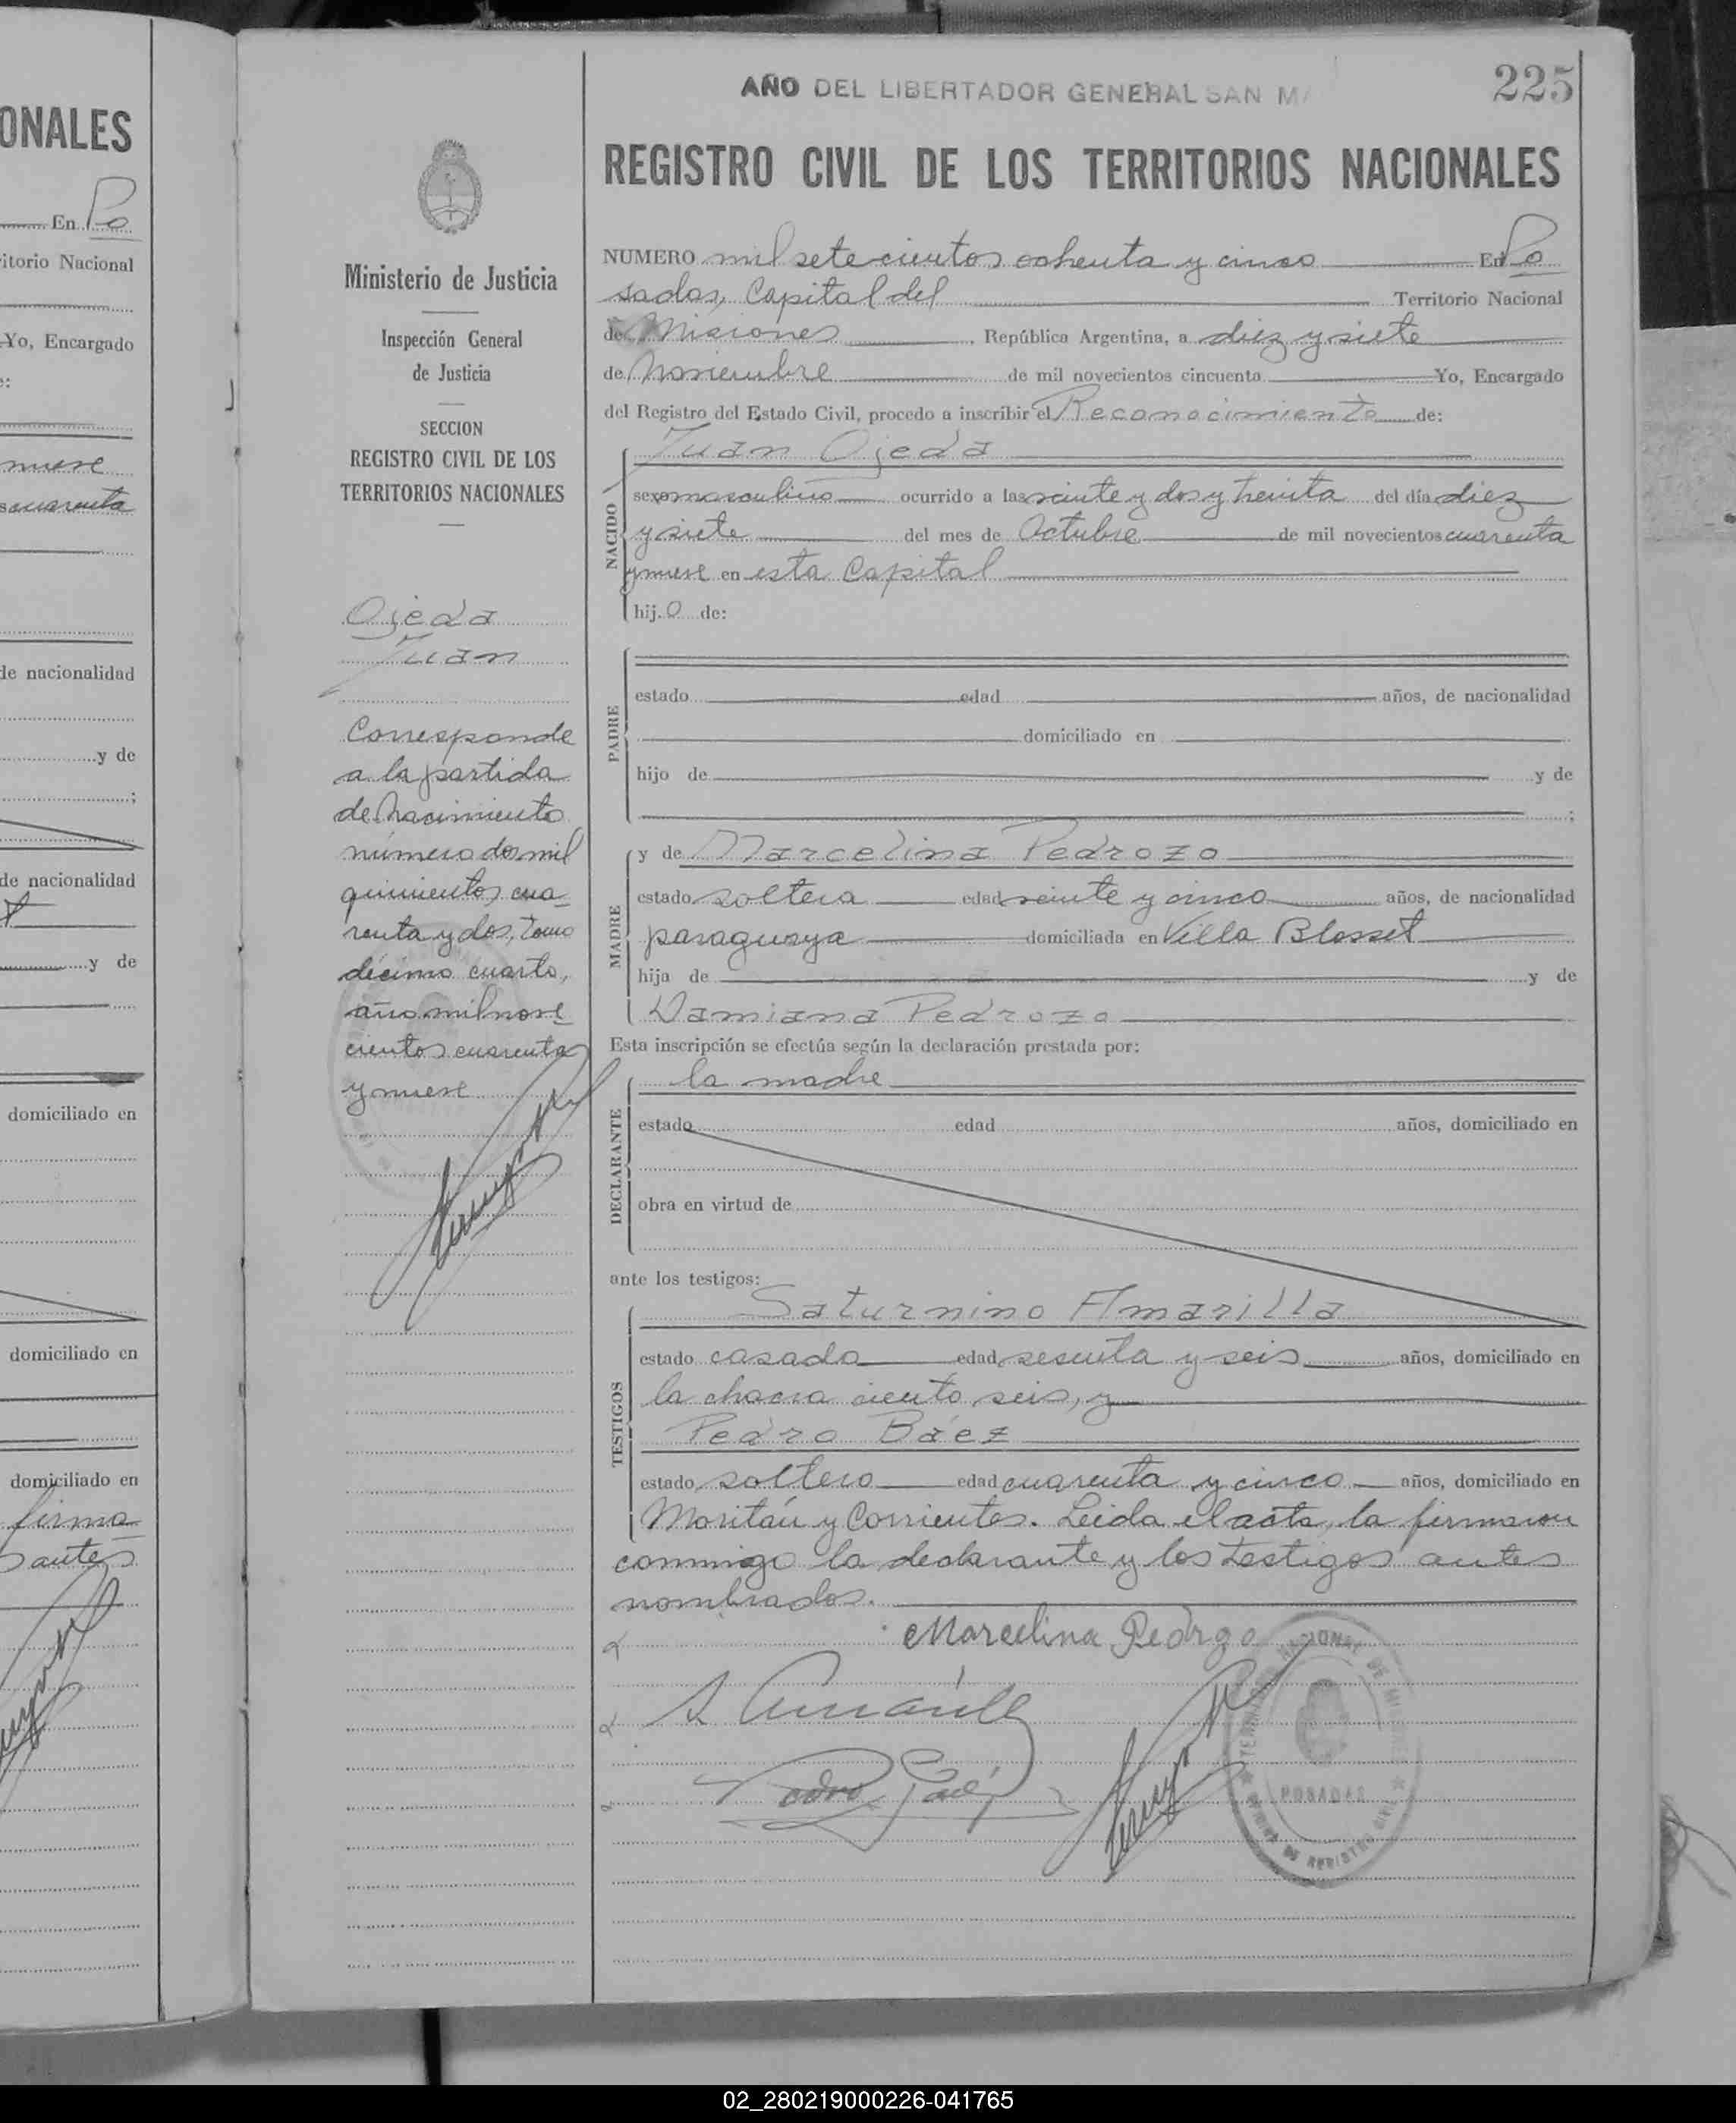 ONALES
En Po
itorio Nacional
Yo, Encargado
nueve
cuarenta
de nacionalidad
y de
;
de nacionalidad
y de
domiciliado en
domiciliado en
domiciliado en
firma
antes
AÑO DEL LIBERTADOR GENERAL SAN MA
225
Ministerio de Justicia
Inspección General
de Justicia
SECCION
REGISTRO CIVIL DE LOS
TERRITORIOS NACIONALES
Ojeda
Juan
Corresponde
a la partida
de nacimiento
número dos mil
quinientos cua-
renta y dos, tomo
décimo cuarto,
año mil nove-
cientos cuarenta
y nueve
REGISTRO CIVIL DE LOS TERRITORIOS NACIONALES
NUMERO mil setecientos ochenta y cinco En Po
sadas, Capital del Territorio Nacional
de Misiones, República Argentina, a diez y siete
de Noviembre de mil novecientos cincuenta Yo, Encargado
del Registro del Estado Civil, procedo a inscribir el Reconocimiento de:
Juan Ojeda
NACIDO
sexo masculino ocurrido a las veinte y dos y treinta del día diez
y siete del mes de Octubre de mil novecientos cuarenta
y nueve en esta Capital
hijo de:
PADRE
estado edad años, de nacionalidad
domiciliado en
hijo de y de
;
MADRE
y de Marcelina Pedrozo
estado soltera edad veinte y cinco años, de nacionalidad
paraguaya domiciliada en Villa Blosset
hija de y de
Damiana Pedrozo
Esta inscripción se efectúa según la declaración prestada por:
DECLARANTE
la madre
estado edad años, domiciliado en
obra en virtud de
ante los testigos:
TESTIGOS
Saturnino Amarilla
estado casado edad sesenta y seis años, domiciliado en
la chacra ciento seis, y
Pedro Báez
estado soltero edad cuarenta y cinco años, domiciliado en
Moritán y Corrientes. Leida el acta, la firmaron
conmigo la declarante y los testigos antes
nombrados.
Marcelina Pedrozo
S Amarilla
Pedro Báez
TERRITORIO NACIONAL DE MISIONES
POSADAS
OFICINA DE REGISTRO CIVIL
02_280219000226-041765